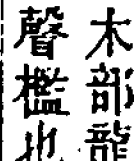 木部龍
聲檻也